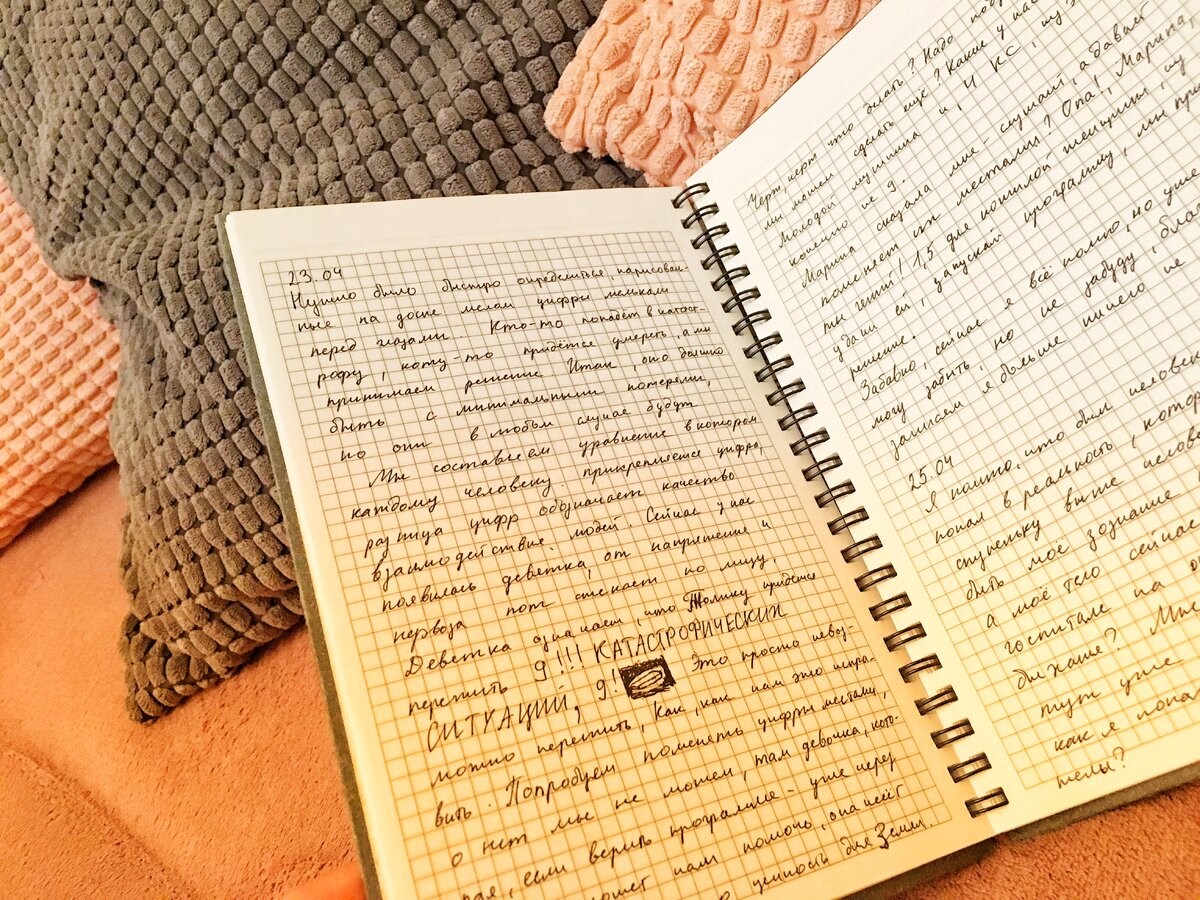 23.04
Нужно было быстро определиться, нарисован-
ные на доске мелом цифры мелькали
перед глазами. Кто-то попадёт в катаст-
рофу, кому-то придётся умереть, а мы
принимаем решение. Итак, оно должно
быть с минимальными потерями,
но они в любом случае будут
Мы составляем уравнение в котором
каждому человеку прикрепляется цифра,
разница цифр обозначает качество
взаимодействие людей. Сейчас у нас
появилась девятка, от напряжение и
первоза пот стекает по лицу.
Девятка означает, что Толику придётся
пережить 9!!! КАТАСТРОФИЧЕСКИХ
СИТУАЦИЙ, 9! Это просто невоз-
можно пережить, как, как нам это испра-
вить. Попробуем поменять цифры местами,
о нет мы не можем, там девочка, кото-
рая, если верить программе - уже через
может нам помочь, она несёт
ценность для Земли.
Черт, черт что делать? Надо
мы можем сделать ещё? Какие у нас
Молодой мужчина и, 4 КС, ну
конечно не 9.
Марина сказала мне - слушай, а давай
поменяем их местами? Опа! Марина,
ты гений! 1,5 дне пожилой женщины, ну
удали ей, запускай программу, мы
решение.
Забавно, сейчас я всё помню, но уже
могу забыть, но не забуду,
записям я больше ничего не
25.04
Я понято, что был человеко
попал в реальность, котор
ступеньку выше челове
быть моё зознание
а моё тело сейчас
госпитале на
дыхание?
тут уже
как я попа
телы?